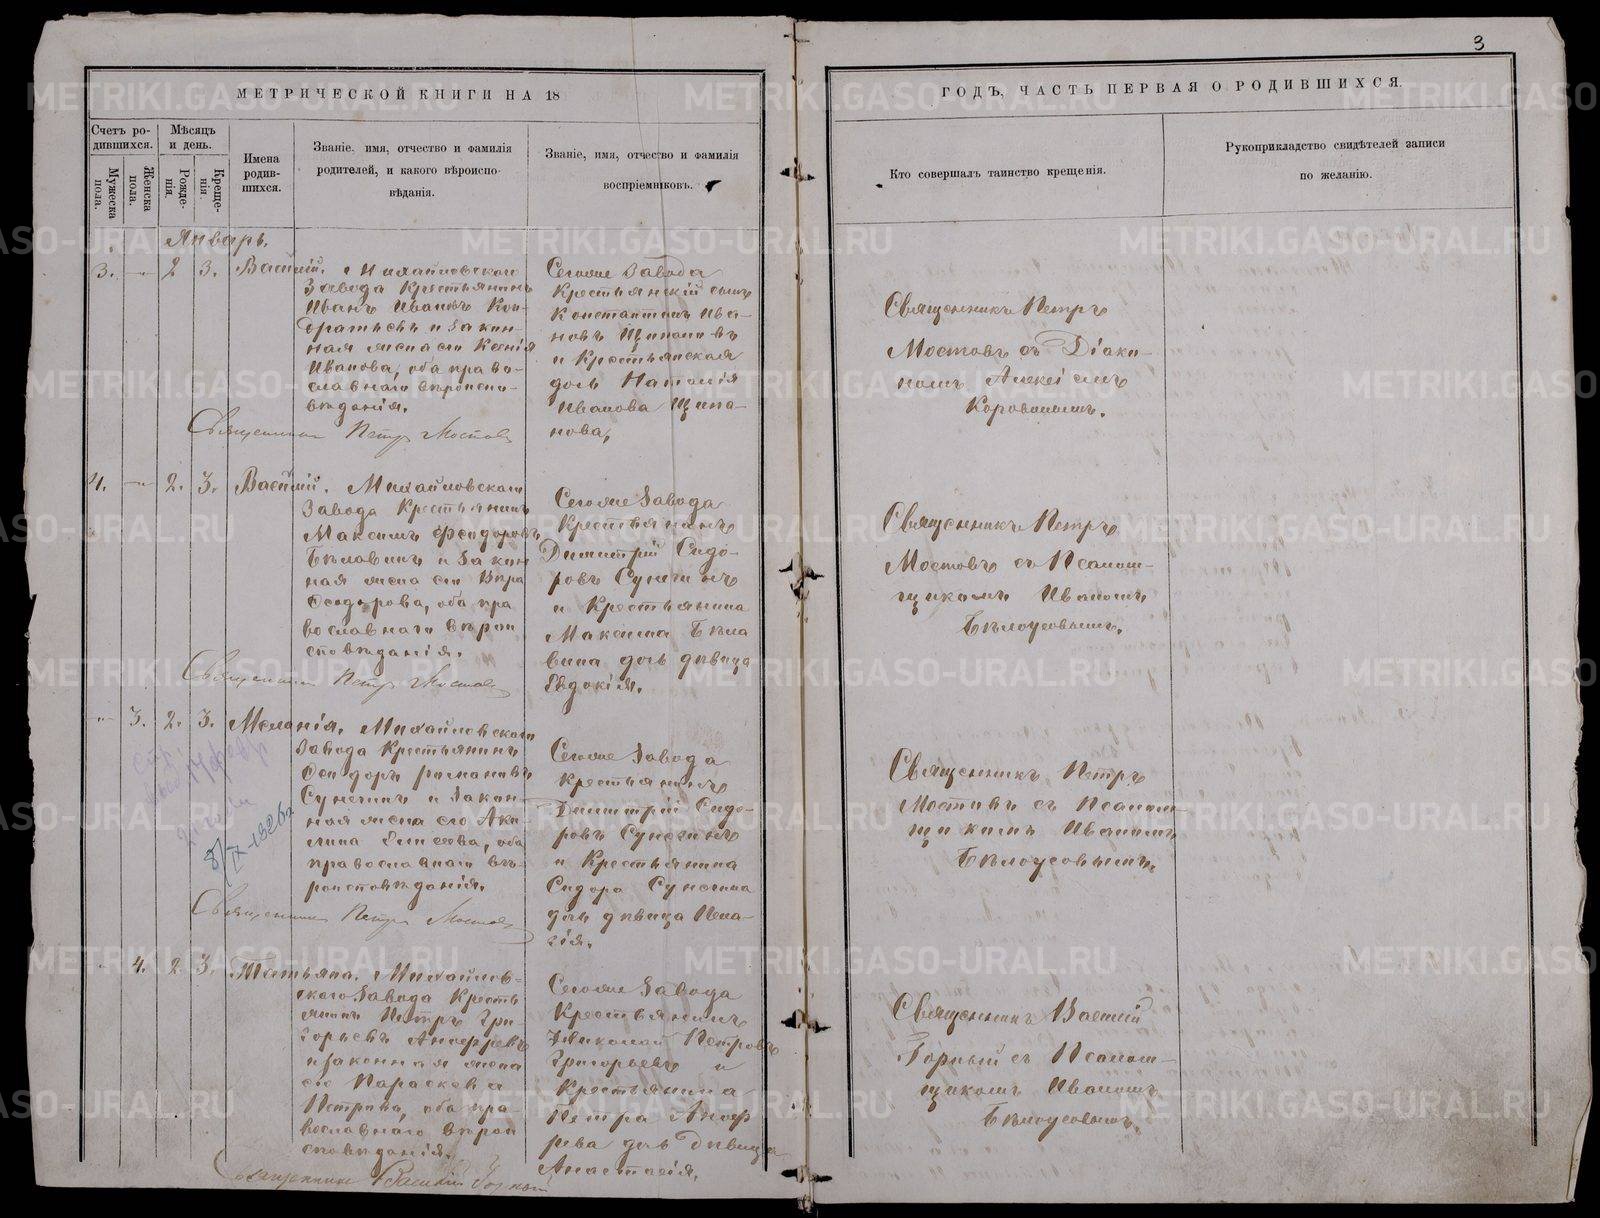 3
МЕТРИЧЕСКОЙ КНИГИ НА 18
ГОДЪ, ЧАСТЬ ПЕРВАЯ О РОДИВШИХСЯ.
Счетъ ро-
дившихся.
Мужеска
пола.
Женска
пола.
Мѣсяцъ
и день.
Рожде-
нія.
Креще-
нія.
Имена
родив-
шихся.
Званіе, имя, отчество и фамилія
родителей, и какого вѣроиспо-
вѣданія.
Званіе, имя, отчество и фамилія
воспріемниковъ.
Кто совершалъ таинство крещенія.
Рукоприкладство свидѣтелей записи
по желанію.
Январь.
3. 2 3. Василій.
Михайловскаго
Завода Крестьянинъ
Иванъ Ивановъ Кон-
дратьевъ и закон-
ная жена его Ксенія
Иванова, оба право-
славнаго вѣроиспо-
вѣданія.
Священникъ Петръ Мостовъ
Сегоже Завода
Крестьянскій сынъ
Константинъ Ива-
новъ Щипановъ
и Крестьянская
дочь Наталія
Иванова Щипа-
нова.
Священникъ Петръ
Мостовъ съ Діако-
номъ Алексіемъ
Коровинымъ.
4. 2. 3. Василій.
Михайловскаго
Завода Крестьянинъ
Максимъ Феодоровъ
Бѣлавинъ и закон
ная жена его Вѣра
Феодорова, оба пра
вославнаго вѣрои
сповѣданія.
Священникъ Петръ Мостовъ
Сегоже Завода
Крестьянинъ
Димитрій Сидо-
ровъ Сунегинъ
и Крестьянина
Максима Бѣла
вина дочь дѣвица
Евдокія.
Священникъ Петръ
Мостовъ съ Псалом-
щикомъ Иваномъ
Бѣлоусовымъ.
3. 2. 3. Меланія.
Михайловскаго
Завода Крестьянинъ
Сунегинъ и закон-
ная жена его Аки-
лина Елисеева, оба
православнаго вѣ-
роисповѣданія.
Священникъ Петръ Мостовъ
Сегоже Завода
Крестьянинъ
Димитрій Сидо-
ровъ Сунегинъ
и Крестьянина
Сидора Сунегина
дочь дѣвица Пела-
гія.
Священникъ Петръ
Мостовъ съ Псалом
щикомъ Иваномъ
Бѣлоусовымъ.
8/IX-1926г
4. 2. 3. Татьяна.
Михайлов-
скаго Завода Кресть
янинъ Петръ Гри-
горьевъ
и законная жена
его Параскева
Петрова, оба пра-
вославнаго вѣрои
сповѣданія.
Священникъ Василій Горный
Сегоже Завода
Крестьянинъ
Николай Петровъ
Григорьевъ и
Крестьянина
Петра
дочь дѣвица
Анастасія.
Священникъ Василій
Горный съ Псалом-
щикомъ Иваномъ
Бѣлоусовымъ.
METRIKI.GASO-URAL.RU